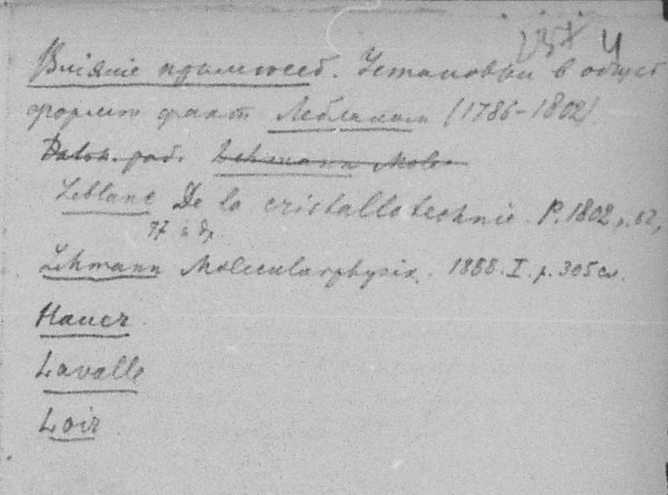 237 4
Вліяніе примѣсей. Установки в общей
формѣ факт Лебланом (1786–1802)
раб. Lehmann Mole
Leblanc De la cristallotechnie. P. 1802, p. 62,
77 и др.
Lehmann Molecularphysik. 1888. I. p. 305 сл.
Hauer
Lavalle
Loir